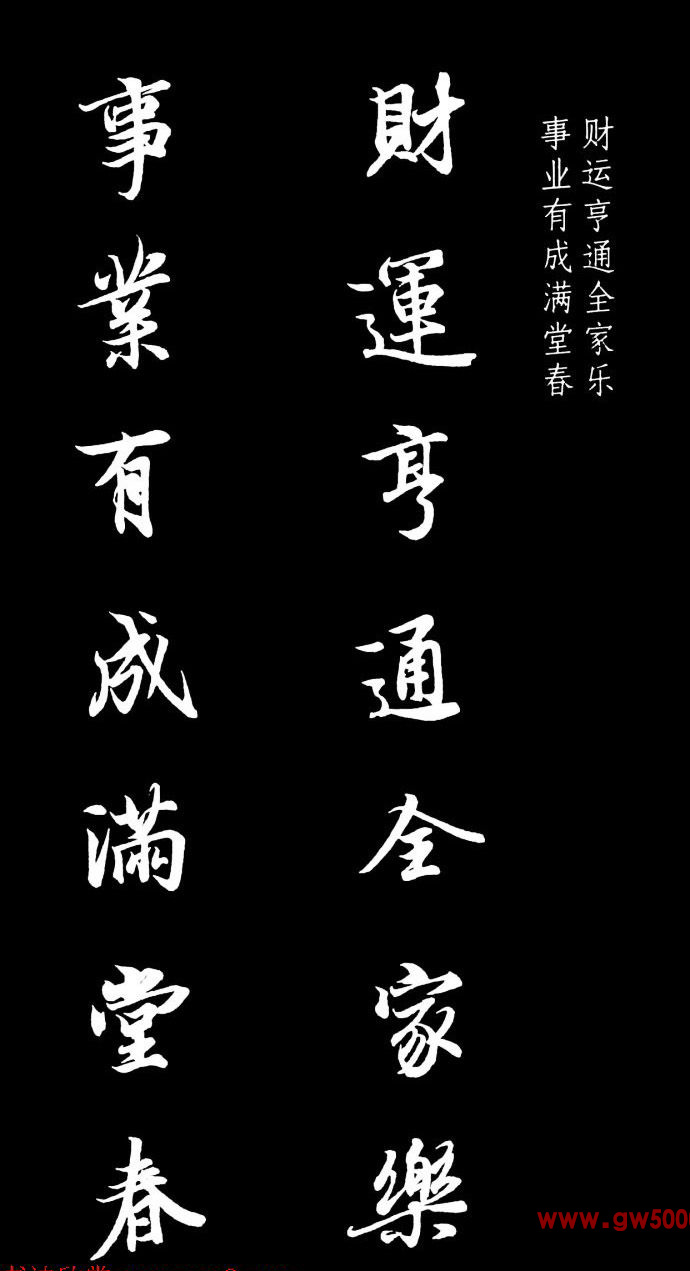 财运亨通全家乐
事业有成满堂春
財運亨通全家樂
事業有成滿堂春
www.gw500